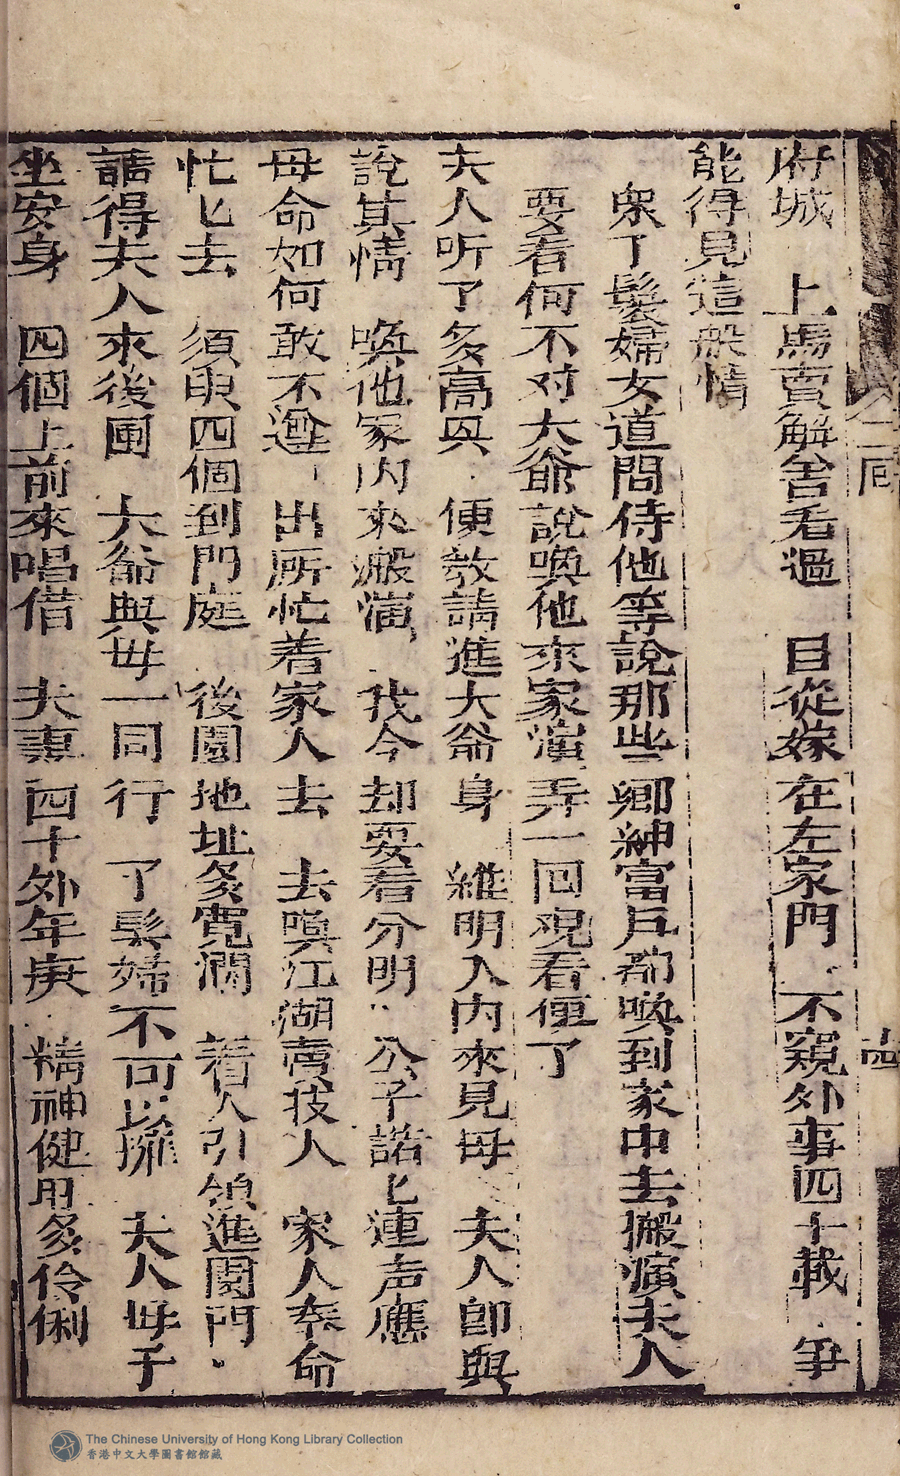 府城　上馬賣解舍看過　目從嫁在左家門　不窺外事四十載　爭
能得見這般情
衆丫鬟婦女道問侍他等說那些鄉紳富戶都喚到家中去搬演夫人
要看何不对大爺說喚他來家演弄一回观看便了
夫人听了多高兴　便教請進大爺身　維明入內來見母　夫人卽與
說其情　喚他家內來搬演　我今却要看分明　公子諾匕連声應
母命如何敢不遵　出厮忙着家人去　去喚江湖賣技人　家人奉命
忙匕去　須臾四個到門庭　後園地址多寬濶　着人引領進園門
請得夫人來後園　大爺與母一同行　丫髮婦不可以擁　夫人母子
坐安身　四個上前來唱偌　夫妻四十外年庚　精神健用多伶俐
二囘
十四
The Chinese University of Hong Kong Library Collection
香港中文大學圖書館館藏